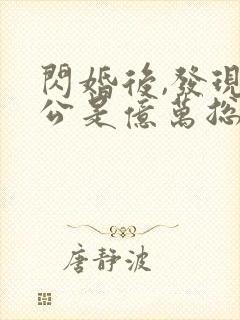 閃婚後,發現
公是億萬總
唐靜波